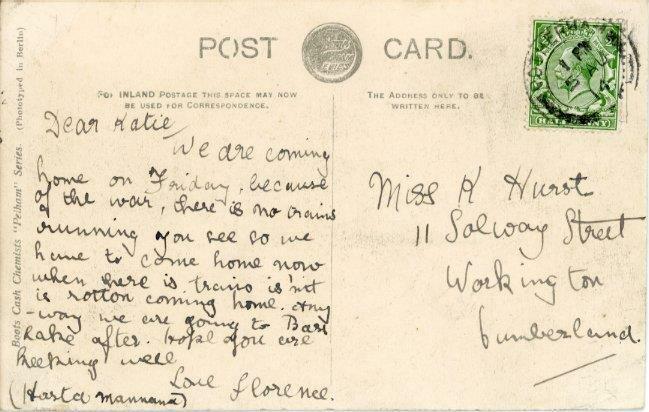 POST CARD.
FOR INLAND POSTAGE THIS SPACE MAY NOW
BE USED FOR CORRESPONDENCE.
THE ADDRESS ONLY TO BE
WRITTEN HERE.
Boots Cash Chemists "Pelham" Series. (Phototyped in Berlin)
Dear Katie,
We are coming
home on Friday, because
of the war, there is no trains
running you see so we
have to come home now
when there is trains is'nt
is rotton coming home. Any
-way we are going to
Lake after. hope you are
keeping well
Love Florence.
(Hasta mannana)
Miss K Hurst
11 Solway Street
Workington
Cumberland.
HALFPENNY